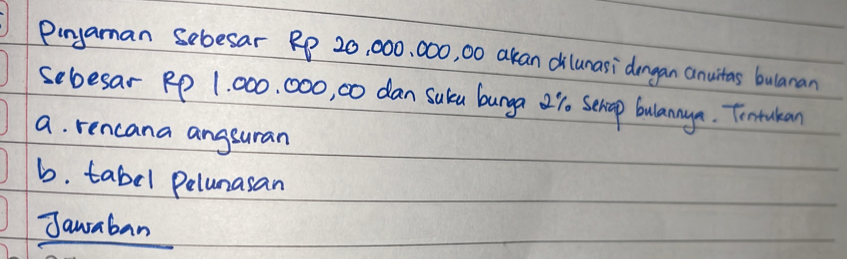 Pinjaman sebesar Rp 20.000.000,00 akan dilunasi dengan anuitas bulanan
sebesar Rp 1.000.000,00 dan suku bunga 2% setiap bulannya. Tentukan
a. rencana angsuran
b. tabel pelunasan
Jawaban